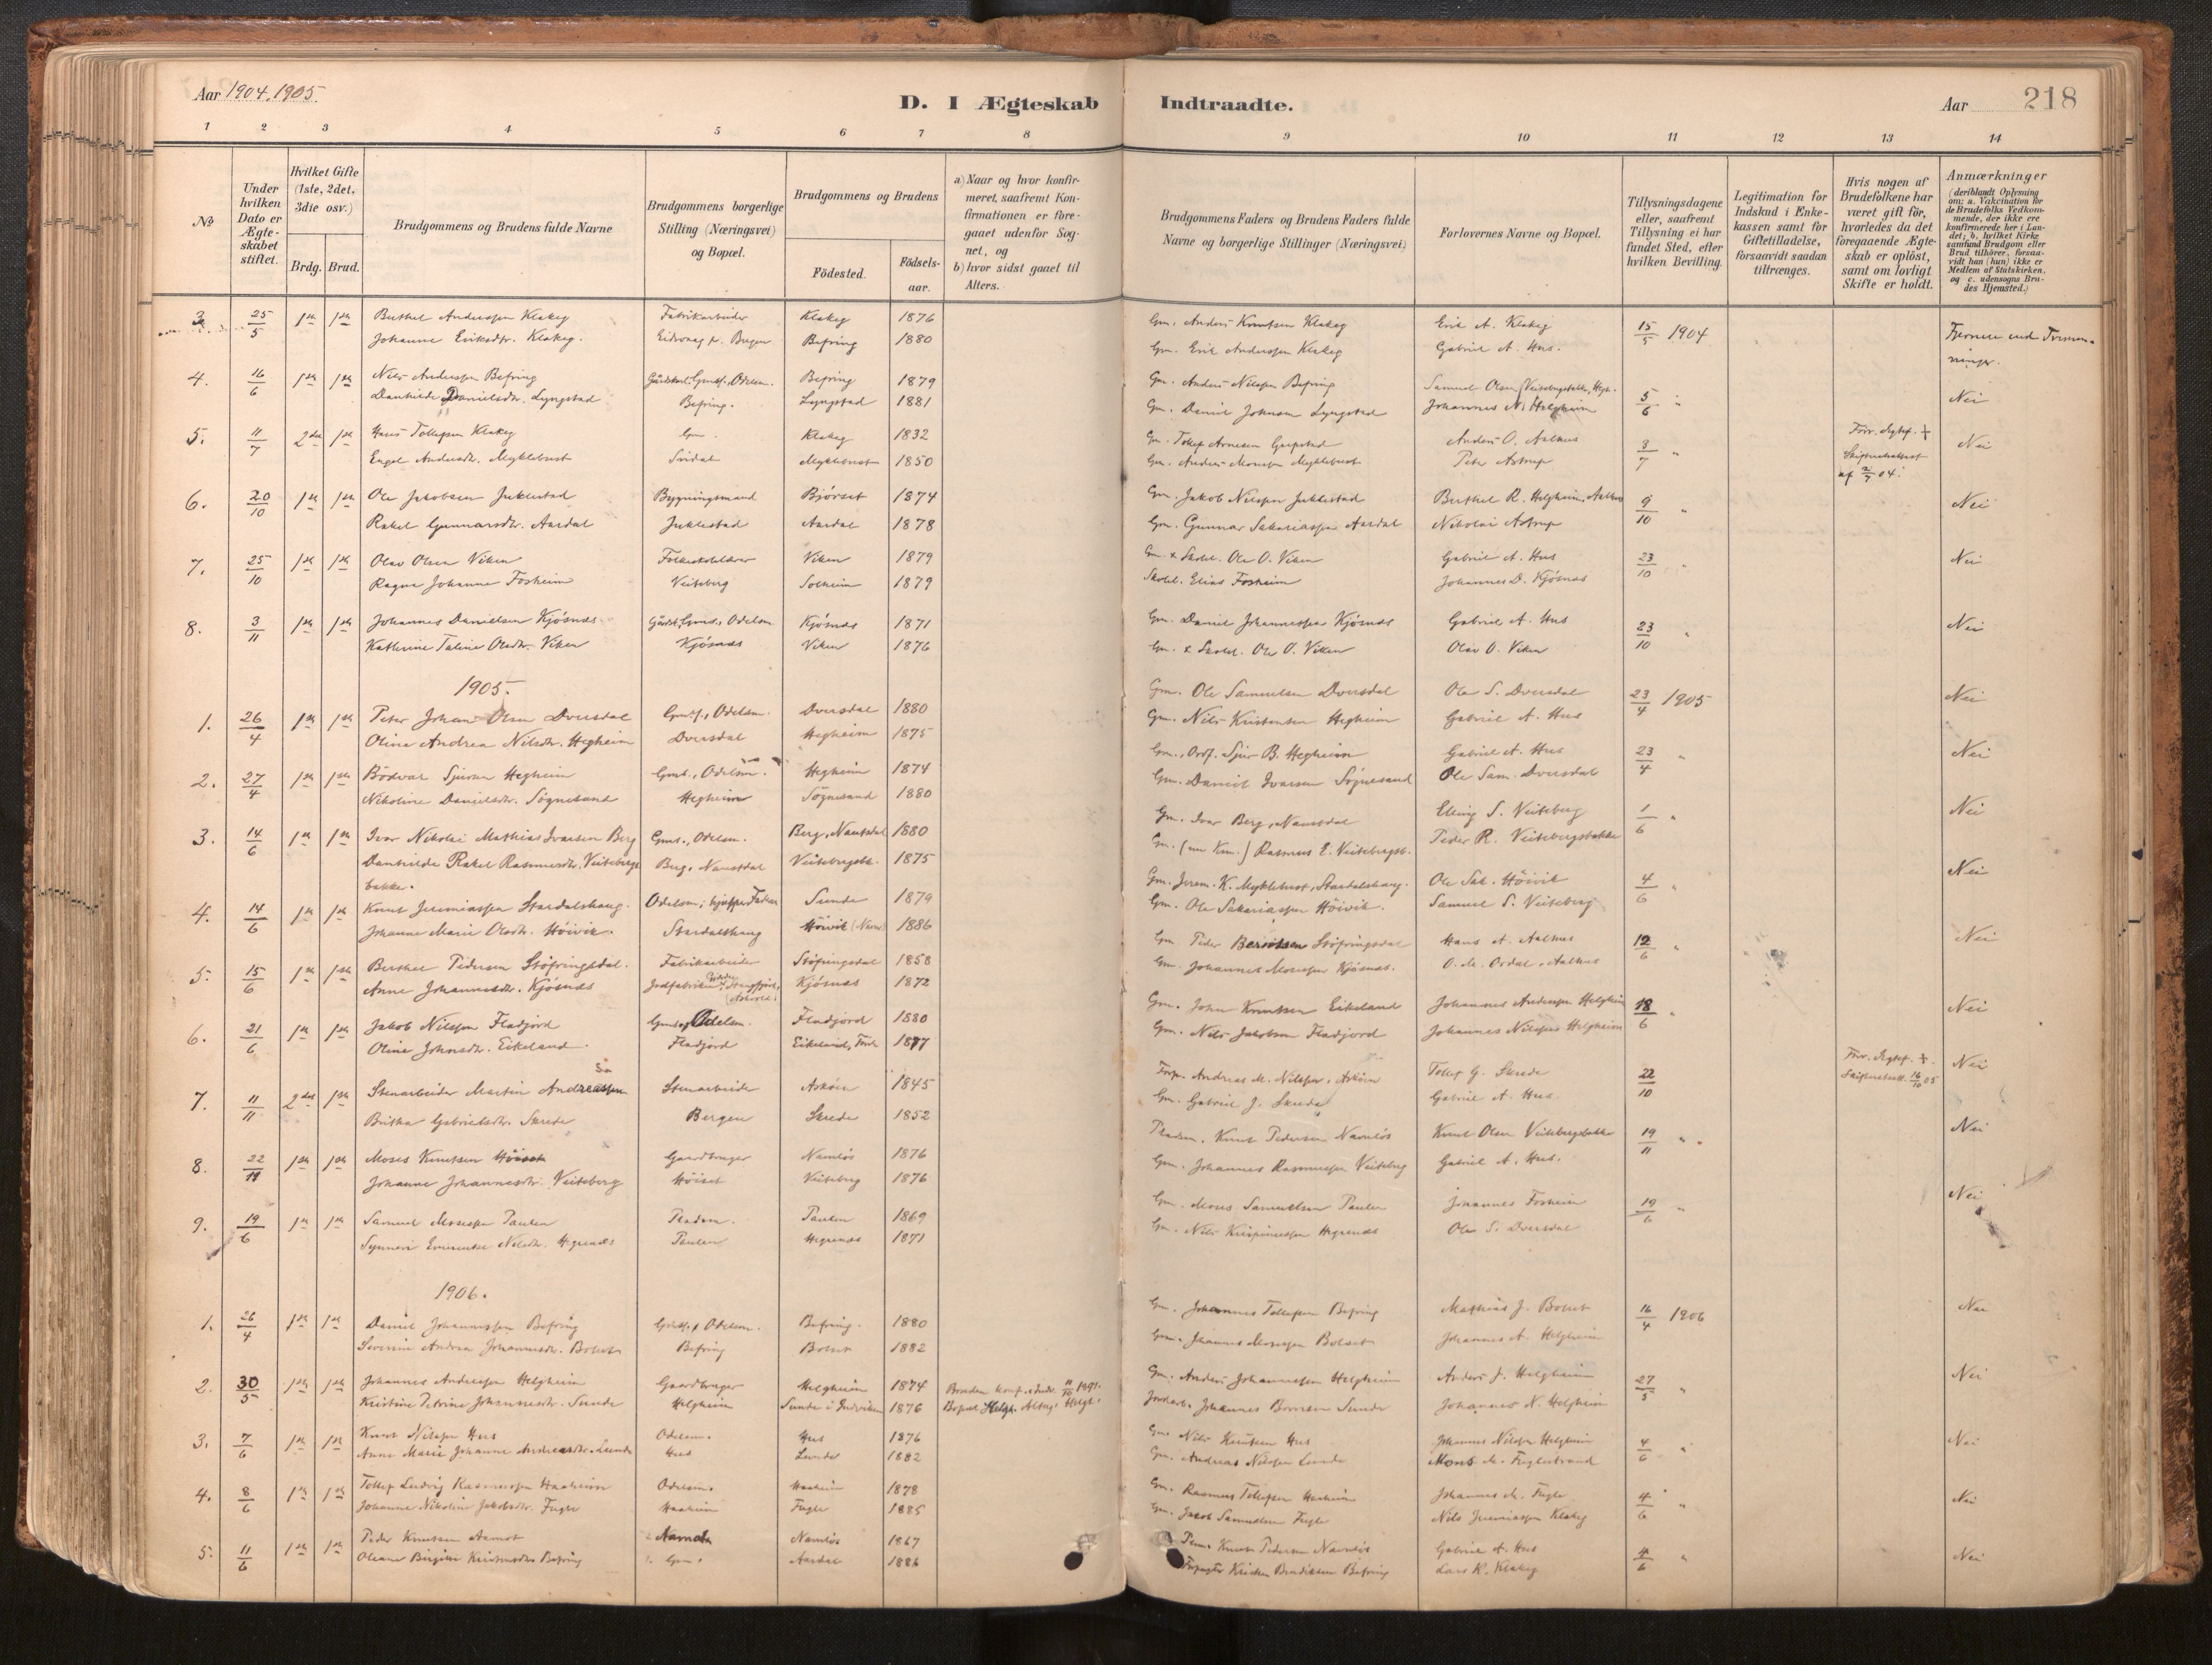 Aar 1904, 1905.
D. I Ægteskab Indtraadte.
Aar 218
1 2 3 4 5 6 7 8 9 10 11 12 13 14
№
Under hvilken Dato er Ægteskabet stiftet.
Hvilket Gifte (1ste, 2det, 3die osv.)
Brdg. Brud.
Brudgommens og Brudens fulde Navne
Brudgommens borgerlige Stilling (Næringsvei) og Bopæl.
Brudgommens og Brudens
Födested. Födselsaar.
a) Naar og hvor konfirmeret, saafremt Konfirmationen er foregaaet udenfor Sognet, og
b) hvor sidst gaaet til Alters.
Brudgommens Faders og Brudens Faders fulde Navne og borgerlige Stillinger (Næringsvei)
Forlovernes Navne og Bopæl.
Tillysningsdagene eller, saafremt Tillysning ei har fundet Sted, efter hvilken Bevilling.
Legitimation for Indskud i Enkekassen samt for Giftetilladelse, forsaavidt saadan tiltrænges.
Hvis nogen af Brudefolkene har været gift för, hvorledes da det foregaaende Ægteskab er oplöst, samt om lovligt Skifte er holdt.
Anmærkninger (deriblandt Oplysning om: a. Vakcination for de Brudefolks Vedkommende, der ikke ere konfirmerede her i Landet; b. hvilket Kirkesamfund Brudgom eller Brud tilhörer, forsaavidt han (hun) ikke er Medlem af Statskirken, og c. udensogns Brudes Hjemsted.)
3. 25/5 1ste 1ste Berthel Anderssen Klakeg Fabrikarbeider Klakeg 1876 Gm. Anders Knutsen Klakeg Erik A. Klakeg 15/5 1904 Fjernere end Tremenninger.
Johanne Eriksdtr. Klakeg. Eidsvaag pr. Bergen Befring 1880 Gm. Erik Anderssen Klakeg Gabriel A. Hus.
4. 16/6 1ste 1ste Nils Anderssen Befring Befring 1879 Gm. Anders Nilssen Befring Samuel Olsen 5/6 " Nei
Danhilde Danielsdtr. Lyngstad Befring. Lyngstad 1881 Gm. Daniel Johnsen Lyngstad Johannes N. Helgheim
5. 11/7 2det 1ste Hans Tollefsen Klakeg Gm. Klakeg 1832 Gm. Tollef Arnesen Anders O. Aalhus 3/7 " Forr. Ægtef. † Nei
Engel Andersdtr. Myklebust Svidal Myklebust 1850 Gm. Anders Monssen Myklebust Peter Astrup Skifteattest af 2/7 04.
6. 20/10 1ste 1ste Ole Jakobsen Juklestad Bygningsmand Bjørset 1874 Gm. Jakob Nilssen Juklestad Berthel R. Helgheim, Aalhus 9/10 " Nei
Rakel Gunnarsdtr. Aardal Juklestad Aardal 1878 Gm. Gunnar Sakariassen Aardal Nikolai Astrup
7. 25/10 1ste 1ste Olav Olsen Viken Folkeskolelærer Viken 1879 Gm. & Skolel. Ole O. Viken Gabriel A. Hus 23/10 " Nei
Ragna Johanne Fosheim Veiteberg Solheim 1879 Skolel. Elias Fosheim Johannes D. Kjösnæs
8. 3/11 1ste 1ste Johannes Danielsen Kjösnæs Kjösnæs 1871 Gm. Daniel Johannessen Kjösnæs Gabriel A. Hus 23/10 " Nei
Kathrine Taline Olsdtr. Viken Kjösnæs Viken 1876 Gm. & Skolel. Ole O. Viken Olav O. Viken
1905.
1. 26/4 1ste 1ste Peter Johan Olsen Dvergsdal Gms., Odelsm. Dvergsdal 1880 Gm. Ole Samuelsen Dvergsdal Ole S. Dvergsdal 23/4 1905 Nei
Oline Andrea Nilsdtr. Hegheim Dvergsdal Hegheim 1875 Gm. Nils Kristensen Hegheim Gabriel A. Hus
2. 27/4 1ste 1ste Bödvar Sjursen Hegheim Gms., Odelsm. Hegheim 1874 Gm., Ordf. Sjur B. Hegheim Gabriel A. Hus 23/4 " Nei
Nikoline Danielsdtr. Sögnesand Hegheim Sögnesand 1880 Gm. Daniel Ivarsen Sögnesand Ole Sam. Dvergsdal
3. 14/6 1ste 1ste Ivar Nikolai Mathias Ivarsen Berg Gms., Odelsm. Berg, Naustdal 1880 Gm. Ivar Berg, Naustdal Elling S. Veiteberg 1/6 " Nei
Danhilde Rakel Rasmusdtr. Veitebergsbakke. Berg, Naustdal Veitebergsb. 1875 Gm. (nu Km.) Rasmus E. Veitebergsb. Peder R. Veitebergsbakke
4. 14/6 1ste 1ste Knut Jeremiassen Stardalshaug. Odelsm., hjælper Fader Sunde 1879 Gm. Jerem. K. Myklebust, Stardalshaug. Ole Sak. Höivik 4/6 " Nei
Johanne Marie Olsdtr. Höivik. Stardalshaug Höivik 1886 Gm. Ole Sakariassen Höivik. Samuel S. Veiteberg
5. 15/6 1ste 1ste Berthel Pedersen Stöfringsdal. Fabrikarbeider Stöfringsdal 1858 Gm. Peder Berntsen Stöfringsdal Hans A. Aalhus 12/6 " Nei
Anne Johannesdtr. Kjösnæs Kjösnæs 1872 Gm. Johannes Mosessen Kjösnæs. O. M. Ordal, Aalhus
6. 21/6 1ste 1ste Jakob Nilssen Fladjord Gms. og Odelsm. Fladjord 1880 Gm. John Knutssen Eikeland Johannes Anderssen Helgheim 18/6 " Nei
Oline Johnsdtr. Eikeland. Fladjord Eikeland, Förde 1877 Gm. Nils Jakobsen Fladjord Johannes Nilssen Helgheim
7. 11/11 2det 1ste Stenarbeider Martin Andreassen Stenarbeider Asköen 1845 Forp. Andreas M. Nilssen, Asköen Tollef G. Skrede 22/10 Forr. Ægtef. †. Nei
Britha Gabrielsdtr. Skrede Bergen Skrede 1852 Gm. Gabriel J. Skrede Gabriel A. Hus. Skifteattest 16/10 05
8. 22/11 1ste 1ste Moses Knutsen Höiset Gaardbruger Navnløs 1876 Pladsm. Knut Pedersen Navnløs Knut Olsen Veitebergsbakke 19/11 " Nei
Johanne Johannesdtr. Veiteberg Höiset Veiteberg 1876 Gm. Johannes Rasmussen Veiteberg Gabriel A. Hus.
9. 19/6 1ste 1ste Samuel Mosessen Paulen Pladsm. Paulen 1869 Gm. Moses Samuelsen Paulen Johannes Fosheim 19/6 " Nei
Synneva Nilsdtr. Hegrenæs Paulen Hegrenæs 1871 Gm. Nils Hegrenæs Ole S. Dvergsdal
1906.
1. 26/4 1ste 1ste Daniel Johannessen Befring Odelsm. Befring. 1880 Gm. Johannes Tollefsen Befring Mathias J. Bolset 16/4 1906 Nei
Severine Andrea Johannesdtr. Bolset Befring Bolset 1882 Gm. Johannes Mosessen Bolset Johannes A. Helgheim
2. 30/5 1ste 1ste Johannes Anderssen Helgheim Gaardbruger Helgheim 1874 Bruden konf. i Indv. 11/10 1891. Gm. Anders Johannessen Helgheim Anders J. Helgheim 27/5 " Nei
Kristine Petrine Johannesdtr. Sunde Helgheim Sunde i Indviken 1876 Bopæl Helgh. Johannes Sunde Johannes N. Helgheim
3. 7/6 1ste 1ste Knut Nilssen Hus Odelsm. Hus 1876 Gm. Nils Knutsen Hus Johannes Nilssen Helgheim 4/6 " Nei
Anne Marie Johanne Andreasdtr. Lunde Hus Lunde 1882 Gm. Andreas Nilssen Lunde Mons M. Fuglestrand
4. 8/6 1ste 1ste Tollef Ludvig Rasmussen Haaheim Odelsm. Haaheim 1878 Gm. Rasmus Tollefsen Haaheim Johannes M. Fugle 4/6 " Nei
Johanne Nikoline Jakobsdtr. Fugle Haaheim Fugle 1885 Gm. Jakob Samuelsen Fugle Nils Jeremiassen Klakeg
5. 11/6 1ste 1ste Peder Knutsen Aamot Aamot Navnløs 1867 Knut Pedersen Navnløs Gabriel A. Hus 4/6 " Nei
Oleane Birgitte Befring Gm. Aardal 1886 Befring Lars K. Klakeg